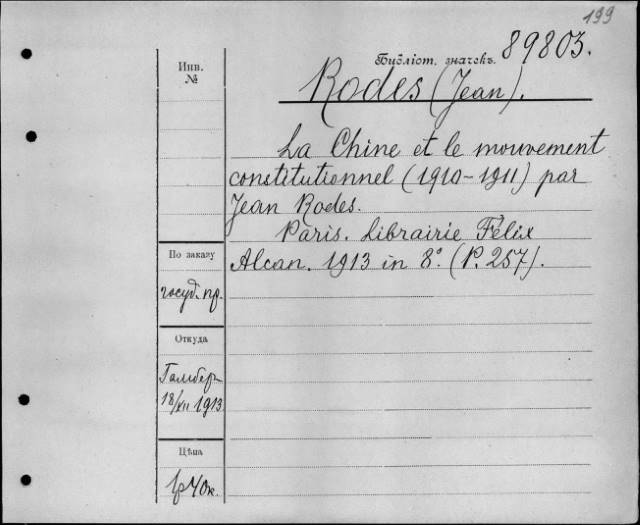 199
Библіот. значекъ. 89803.
Инв.
№
Rodes (Jean).
La Chine et le mouvement
constitutionnel (1910-1911) par
Jean Rodes.
Paris. Librairie Félix
Alcan. 1913 in 8º. (P. 257).
По заказу
госуд. пр.
Откуда
Гамбер
18/XII 1913
Цѣна
1р 40к.